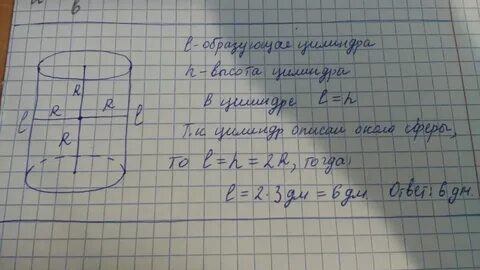 6
R
R R
l l
R
l - образующая цилиндра
h - высота цилиндра
В цилиндре l = h
Т.к цилиндр описан около сферы,
то l = h = 2R, тогда:
l = 2 · 3 дм = 6 дм. Ответ: 6 дм.